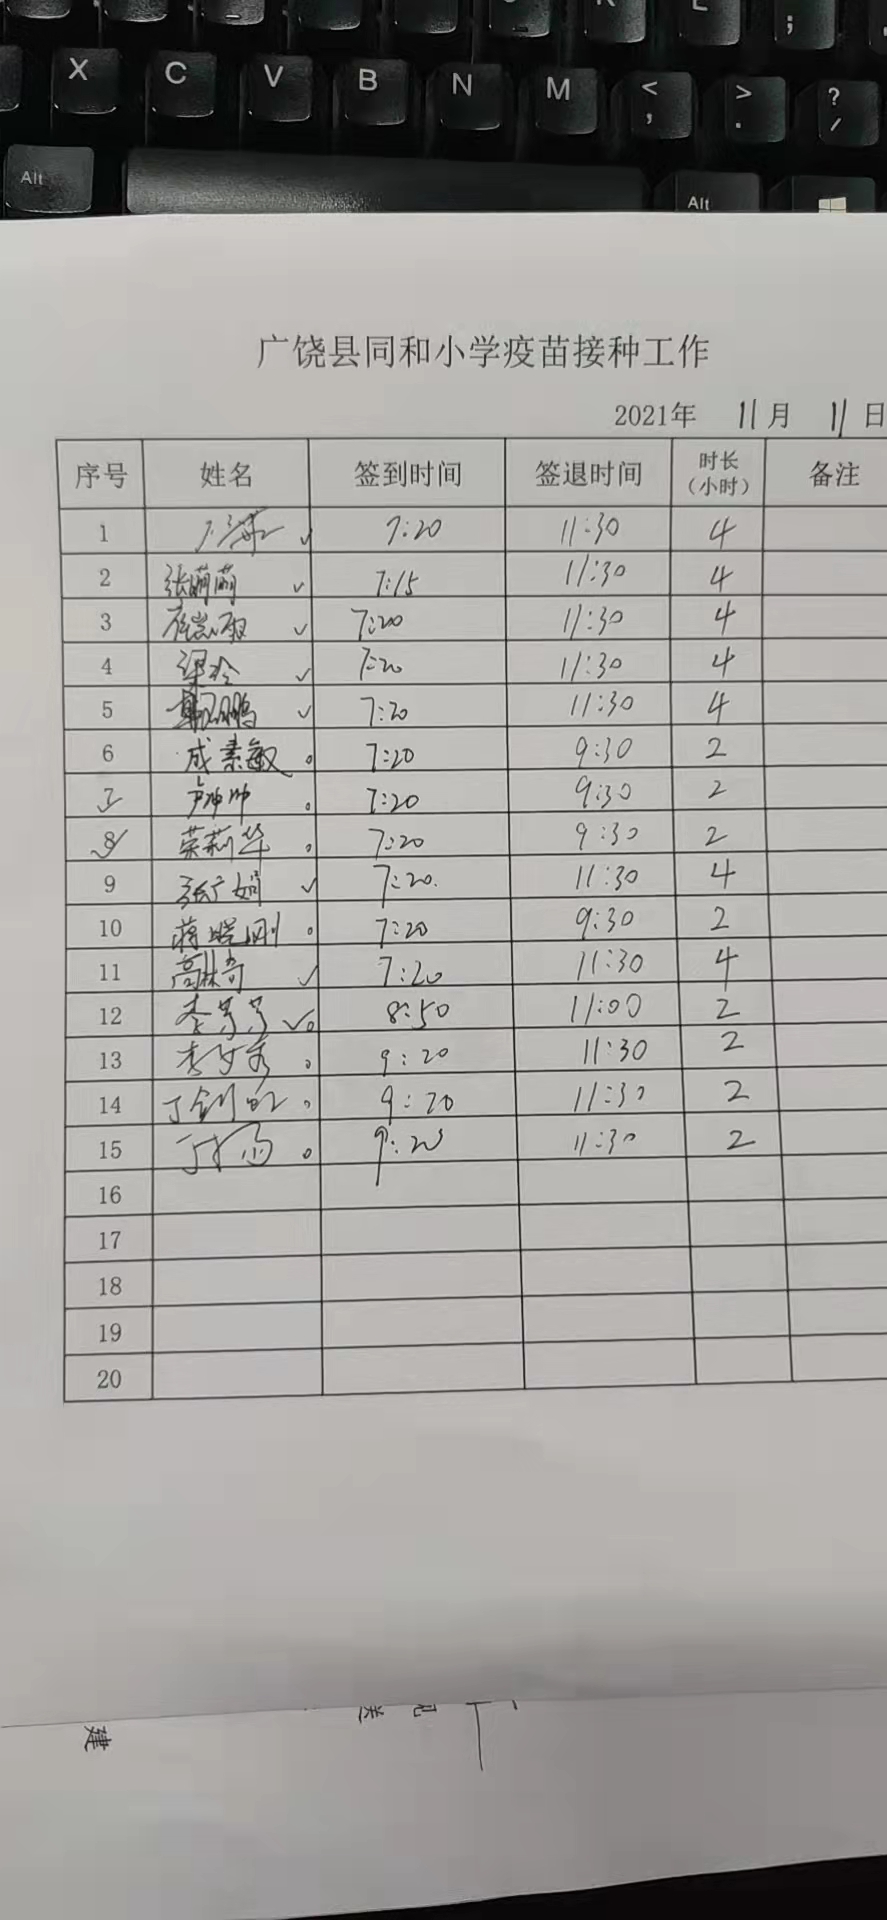 X C V B N M < , > . ? /
Alt Alt
广饶县同和小学疫苗接种工作
2021年 11月 11日
序号 姓名 签到时间 签退时间 时长（小时） 备注
1 7:20 11:30 4
2 张萌萌 7:15 11:30 4
3 7:20 11:30 4
4 梁玲 7:20 11:30 4
5 7:20 11:30 4
6 成素敏 7:20 9:30 2
7 7:20 9:30 2
8 荣莉华 7:20 9:30 2
9 张广娟 7:20 11:30 4
10 蒋晓刚 7:20 9:30 2
11 高林奇 7:20 11:30 4
12 李芳芳 8:50 11:00 2
13 9:20 11:30 2
14 9:20 11:30 2
15 9:20 11:30 2
16
17
18
19
20
建